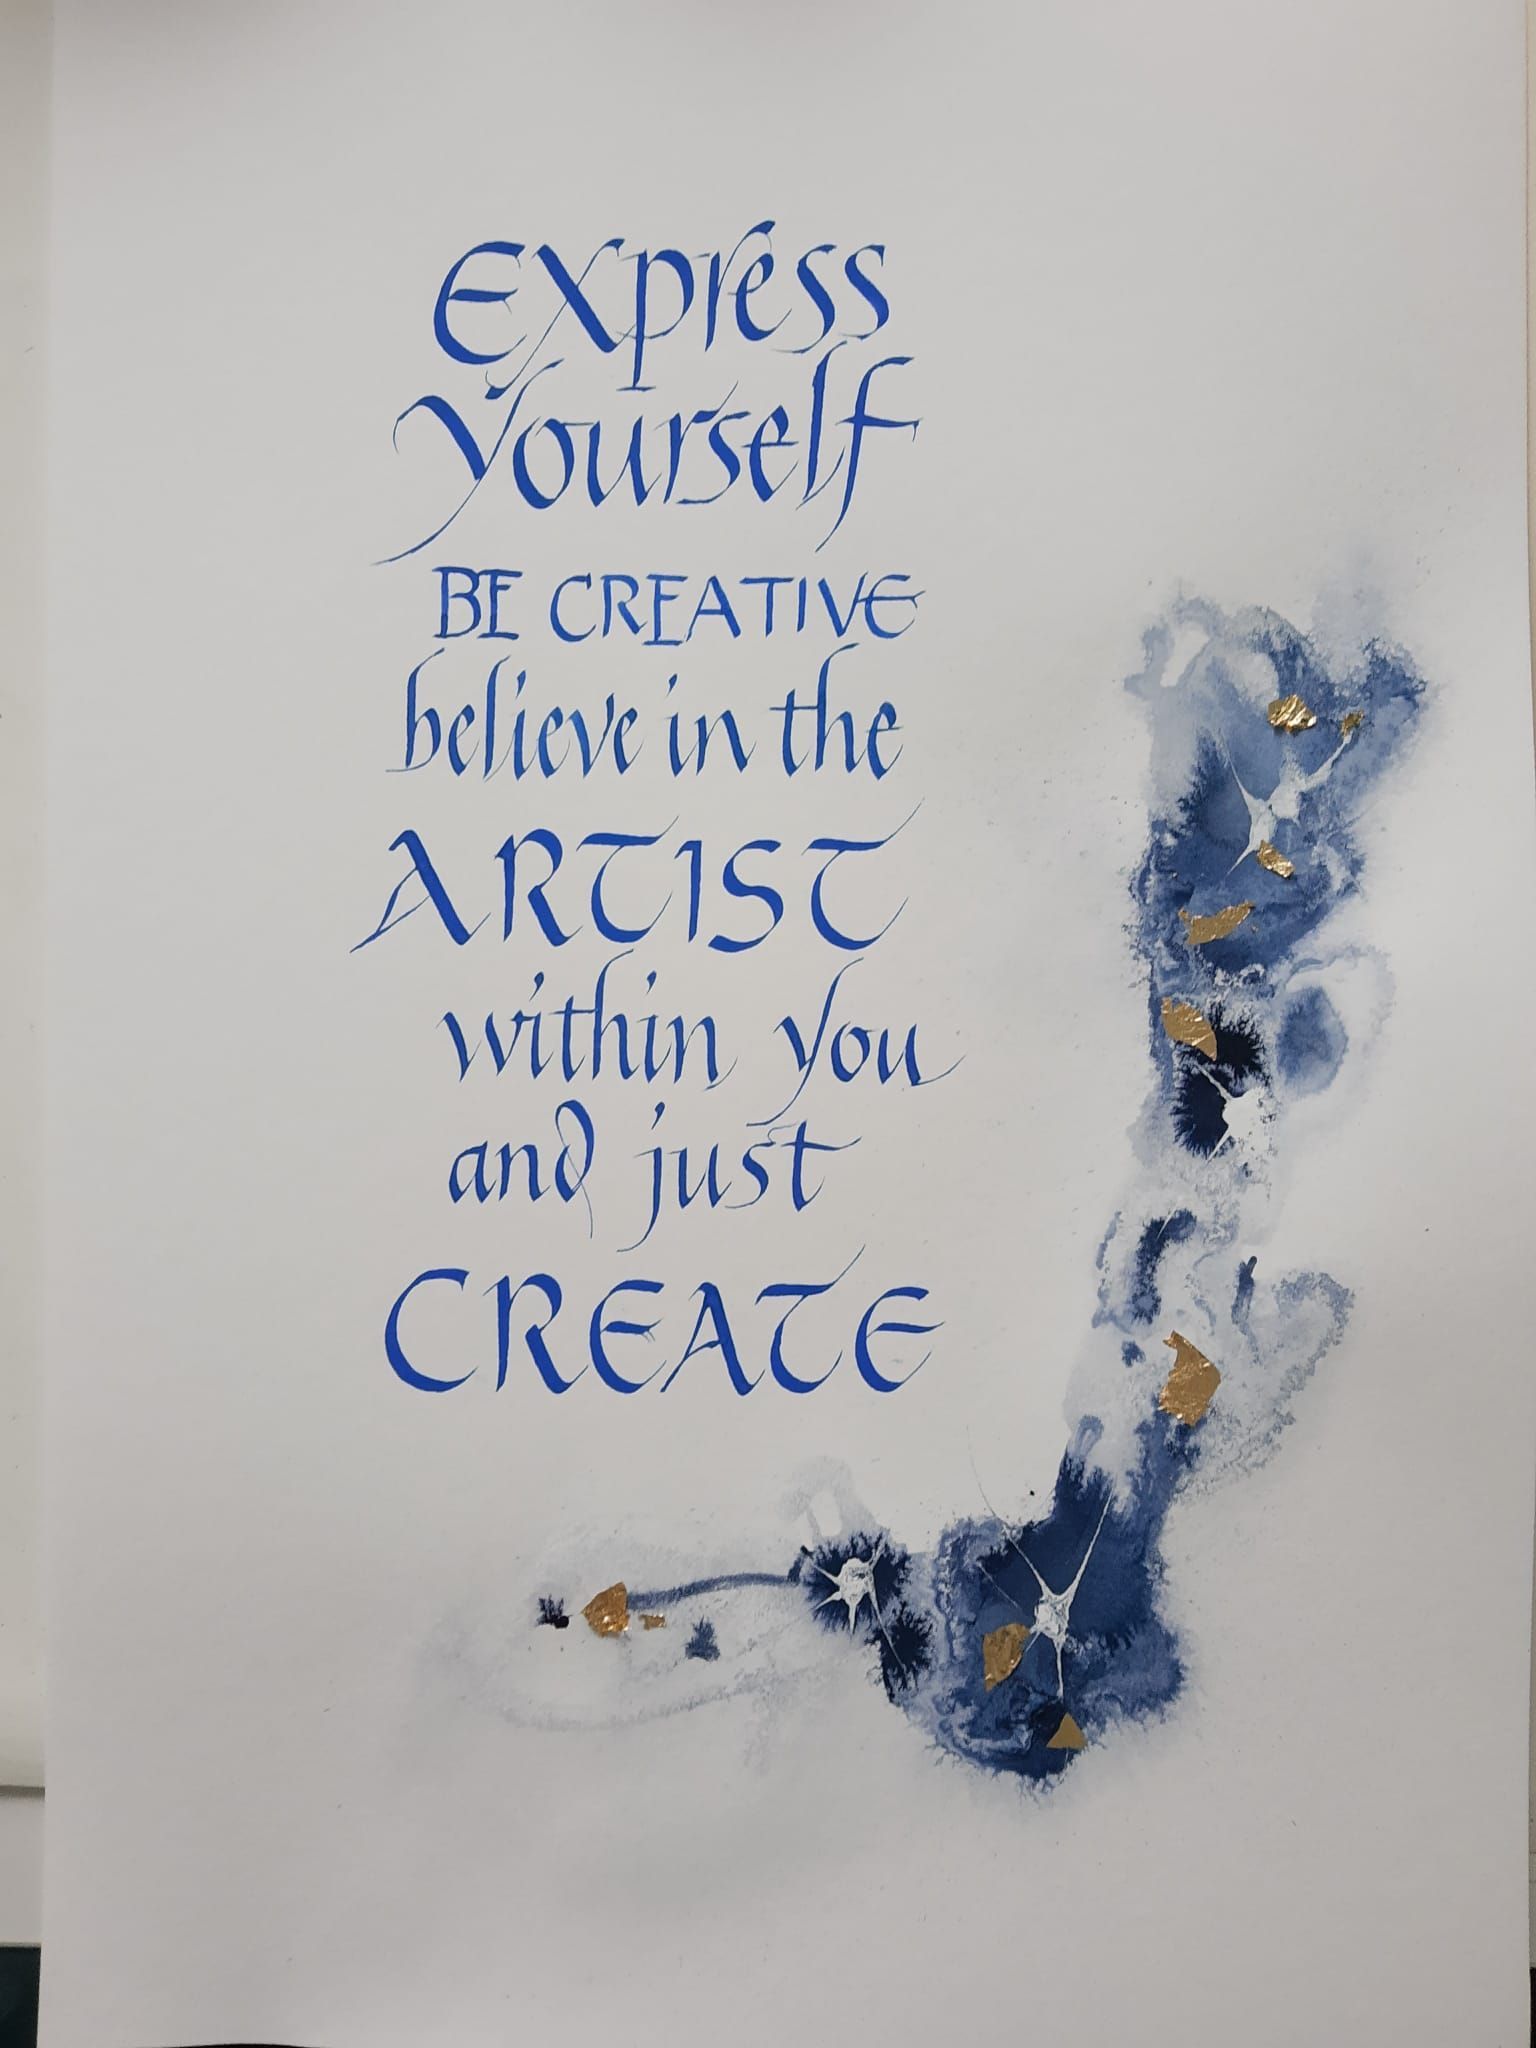 Express
Yourself
BE CREATIVE
believe in the
ARTIST
within you
and just
CREATE